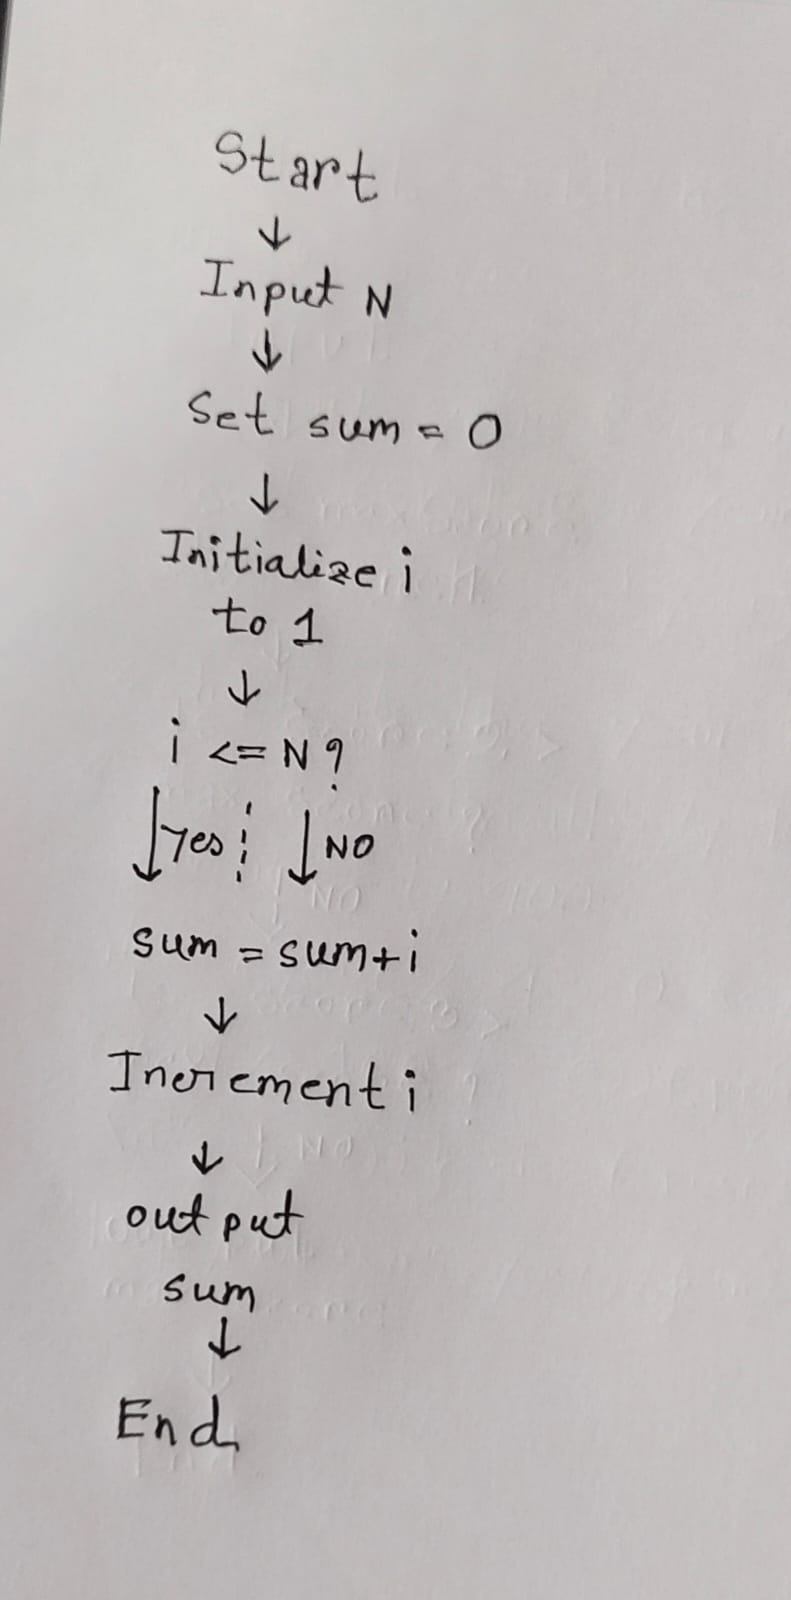 Start
↓
Input N
↓
Set sum = 0
↓
Initialize i
to 1
↓
i <= N ?
↓ Yes ¦ ↓ NO
sum = sum + i
↓
Increment i
↓
output
sum
↓
End